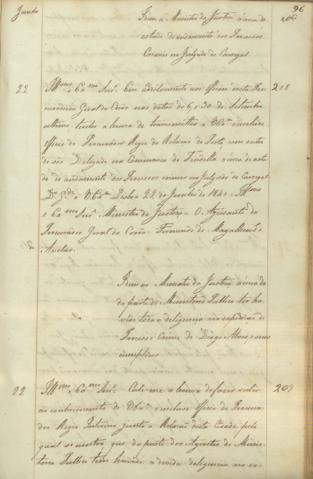 Junho
96
Idem ao Ministro da Justiça acerca do
estado do andamento dos Processos
Crimes no Julgado de Carregal
22
208
Illmo e Exmo Senr. Em additamento aos Officios desta Pro-
curadoria Geral da Corôa nas datas de 6 e 30 de Setembro
ultimo tenho a honra de transmittir a V. Exa o incluso
Officio do Procurador Regio da Relação do Porto, com outro
do seu Delegado na Commarca de acerca do esta-
do do andamento dos Processos crimes no Julgado de Carregal
Ds gde a V. Exa Lisboa 22 de Junho de 1840 = Illmo
e Exmo Senr Ministro da Justiça = O Ajudante do
Procurador Geral da Corôa = Fernando de Magalhães e
Avellar
Idem ao Ministro da Justiça acerca de
da parte do Ministerio Publico ter ha-
vido toda a deligencia na expedição do
Processo Crime de Diogo Alves, e seus
cumplices
22
209
Illmo e Exmo Senr. Cabe-me a honra de fazer subir
ao conhecimento de V. Exa o incluso Officio do Procura-
dor Regio Interino junto á Relação desta Cidade pelo
qual se mostra que da parte dos Agentes do Minis-
terio Publico tem havido a devida deligencia na ex-